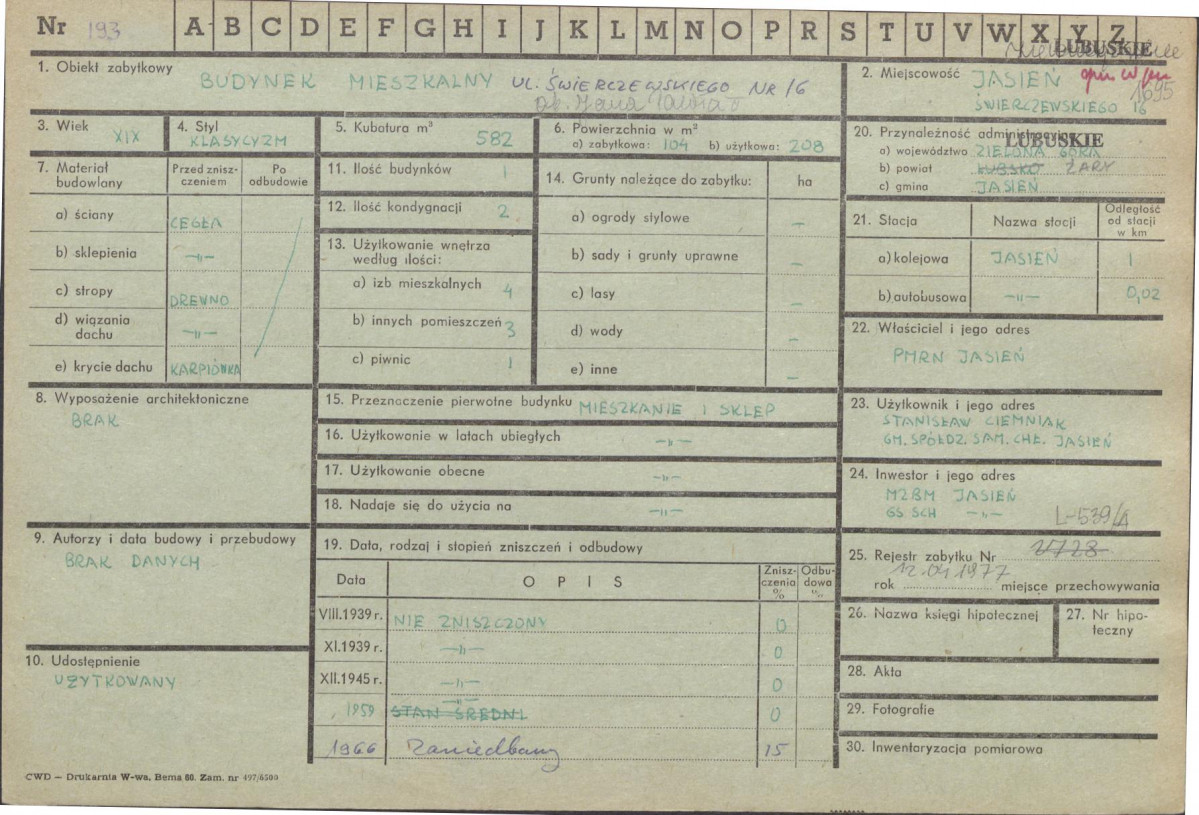 Nr 193 A B C D E F G H I J K L M N O P R S T U V W X Y Z
LUBUSKIE
1. Obiekt zabytkowy BUDYNEK MIESZKALNY UL. ŚWIERCZEWSKIEGO NR 16
2. Miejscowość JASIEŃ
1695
ŚWIERCZEWSKIEGO 16
3. Wiek XIX
4. Styl KLASYCYZM
5. Kubatura m³ 582
6. Powierzchnia w m²
a) zabytkowa: 104 b) użytkowa: 208
20. Przynależność administracyjna
LUBUSKIE
a) województwo ZIELONA GÓRA
b) powiat LUBSKO ŻARY
c) gmina JASIEŃ
7. Materiał budowlany
Przed znisz-
czeniem
Po
odbudowie
a) ściany CEGŁA
b) sklepienia —„—
c) stropy DREWNO
d) wiązania
dachu —„—
e) krycie dachu KARPIÓWKA
11. Ilość budynków 1
12. Ilość kondygnacji 2
13. Użytkowanie wnętrza
według ilości:
a) izb mieszkalnych 4
b) innych pomieszczeń 3
c) piwnic 1
14. Grunty należące do zabytku: ha
a) ogrody stylowe —
b) sady i grunty uprawne —
c) lasy —
d) wody —
e) inne —
21. Stacja Nazwa stacji
Odległość
od stacji
w km
a) kolejowa JASIEŃ 1
b) autobusowa —„— 0,02
22. Właściciel i jego adres
PMRN JASIEŃ
8. Wyposażenie architektoniczne
BRAK
15. Przeznaczenie pierwotne budynku MIESZKANIE I SKLEP
16. Użytkowanie w latach ubiegłych —„—
17. Użytkowanie obecne —„—
18. Nadaje się do użycia na —„—
23. Użytkownik i jego adres
STANISŁAW CIEMNIAK
GM. SPÓŁDZ. SAM. CHŁ. JASIEŃ
24. Inwestor i jego adres
MZBM JASIEŃ
GS SCH —„—
L-539/A
9. Autorzy i data budowy i przebudowy
BRAK DANYCH
19. Data, rodzaj i stopień zniszczeń i odbudowy
Data OPIS
Znisz-
czenia
%
Odbu-
dowa
%
VIII.1939 r. NIE ZNISZCZONY 0
XI.1939 r. —„— 0
XII.1945 r. —„— 0
—„—
1959 STAN ŚREDNI 0
1966 Zaniedbany 15
25. Rejestr zabytku Nr 2728
12.04.1977
rok miejsce przechowywania
26. Nazwa księgi hipotecznej
27. Nr hipo-
teczny
10. Udostępnienie
UŻYTKOWANY
28. Akta
29. Fotografie
30. Inwentaryzacja pomiarowa
CWD — Drukarnia W-wa, Bema 60. Zam. nr 497/6500